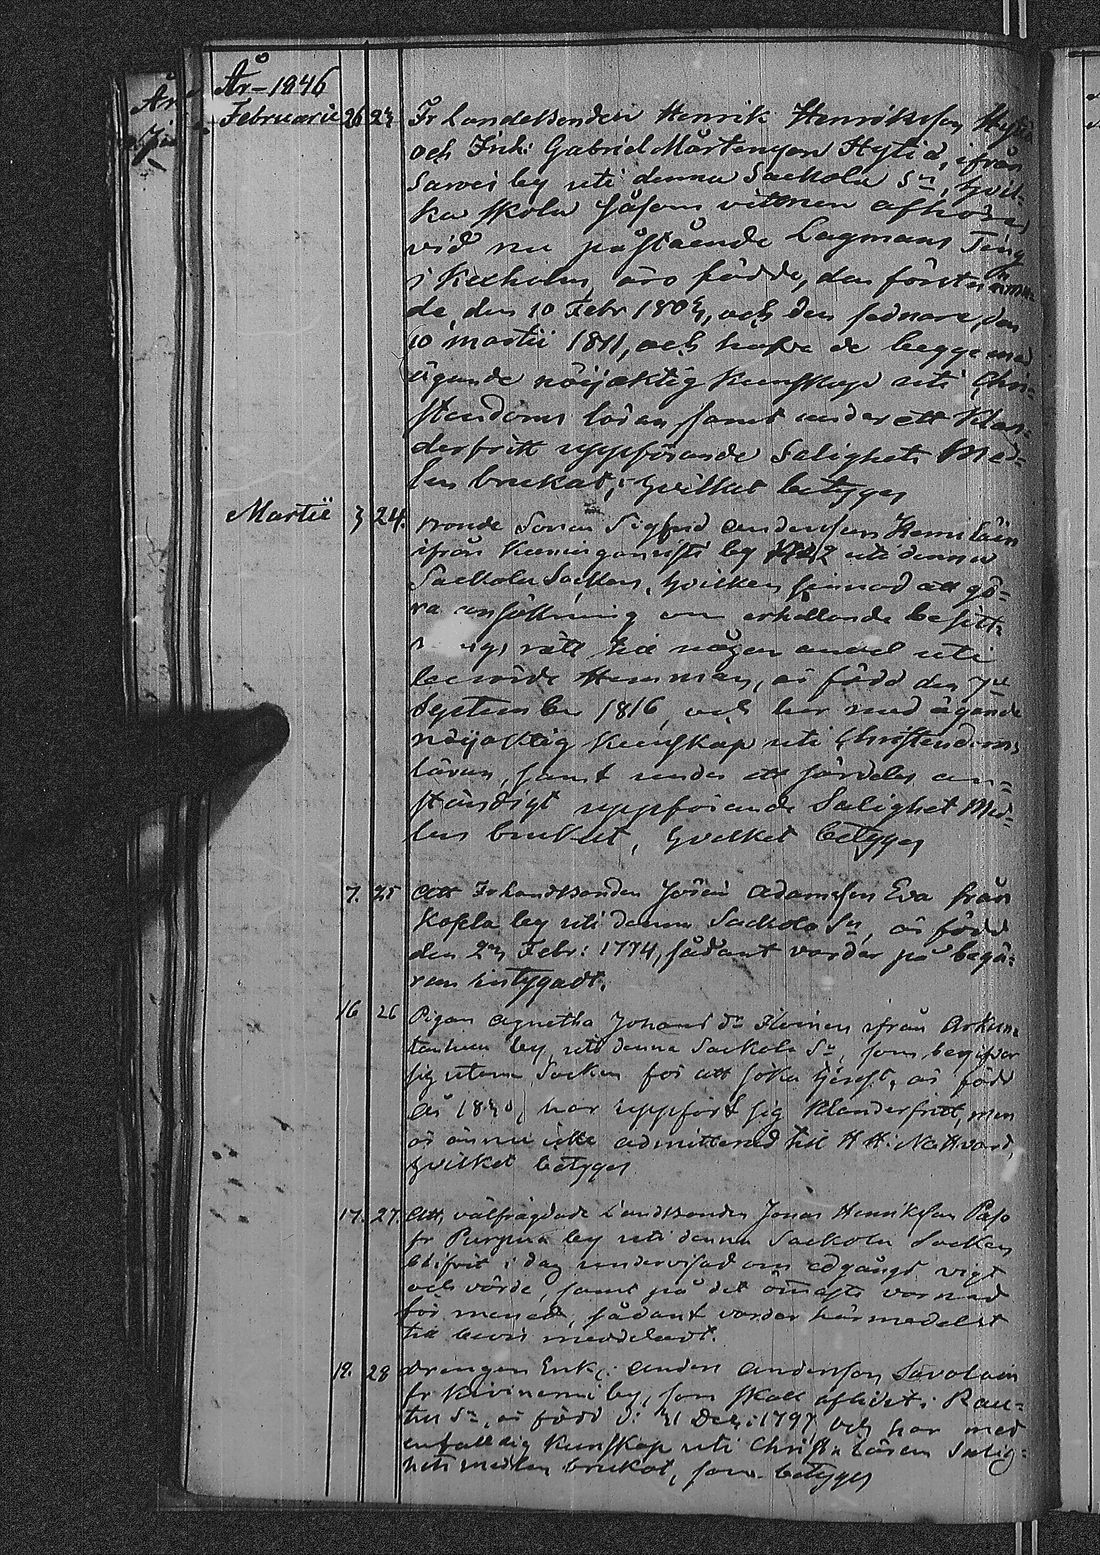 År 1846
Februarii 26 23 Fr Landbonden Henrik Henriksson
och Inh: Gabriel Mårtensson Hytiä, ifrån
by uti denna Sackola Sn, hvil-
ka skola såsom vittnen afhöras
vid nu påstående Lagmans Ting
i Kexholm, äro födde, den förstnämn-
de, den 10 Febr 1803, och den sednare, den
10 martii 1811, och hafva de begge med
ägande nöijaktig kunskap uti Chri-
stendoms läran samt under ett klan-
derfritt uppförande Salighets Med-
len brukat, hvilket betyges
Martii 3 24. Bonde Sonen Sigfrid Andersson
ifrån by N 2 uti denna
Sackola Socken, hvilken sinnad att gö-
ra ansökning om erhållande besitt-
nings rätt till någon andel uti
berörde Hemman, är född den 7de
September 1816, och har med ägande
nöijaktig kunskap uti Christendoms
läran, samt under ett särdeles an-
ständigt uppförande Salighet Med-
len brukat, hvilket betyges
7. 25 Att Fr Landbonden Jöran Adamsson Eva från
Kopla by uti denna Sackola Sn, är född
den 23 Febr: 1774, sådant varder på begä-
ran intygadt.
16 26 Pigan Agnetha Johans dr ifrån
by, uti denna Sackola Sn, som begifver
sig utom Socken för att söka tjenst, är född
år 1830, har uppfört sig klanderfritt, men
är ännu icke admitterad till H H: Nattvard,
hvilket betyges
17. 27. Att, välfrägdade Landbonden Jonas Henriksson Paso
fr by uti denna Sackola Socken
blifvit i dag undervisad om edgångs vigt
och värde, samt på det ömaste varnad
för mened, sådant varder härmedelst
till bevis meddeladt.
19. 28 drengen Enk: Anders Andersson Savolain
fr by, som skall aflidit i Rau-
tus Sn, är född d: 21 Dec: 1797 och har med
enfaldig kunskap uti Christi läran Salig-
hets medlen brukat, som betyges